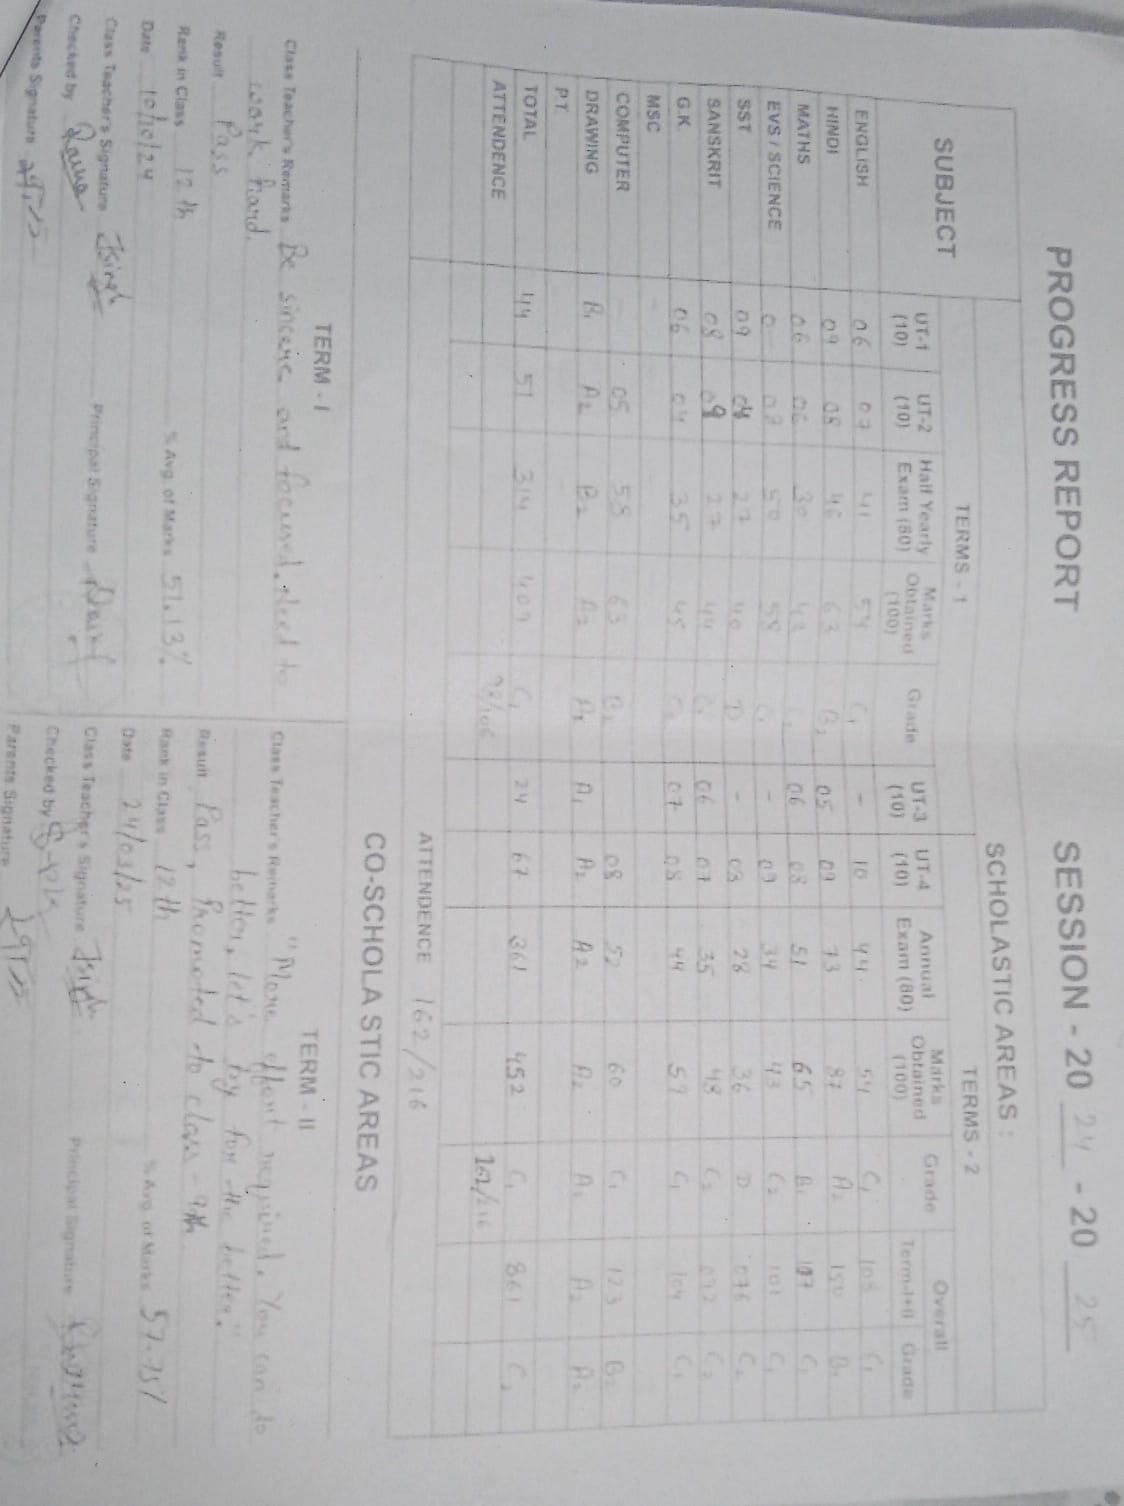 PROGRESS REPORT SESSION - 20 24 - 20 25
SCHOLASTIC AREAS :
SUBJECT TERMS - 1 TERMS - 2 Overall
UT-1 (10) UT-2 (10) Half Yearly Exam (80) Marks Obtained (100) Grade UT-3 (10) UT-4 (10) Annual Exam (80) Marks Obtained (100) Grade Term-I+II Grade
ENGLISH 06 07 41 54 C1 - 10 44 54 C1 108 C1
HINDI 09 08 46 63 B2 05 09 73 87 A2 150 B1
MATHS 06 06 30 42 06 08 51 65 B1 107 C1
EVS / SCIENCE 0 50 58 C1 - 09 34 43 C2 101 C1
SST 09 04 27 40 D - 08 28 36 D 076 C2
SANSKRIT 08 09 27 44 06 07 35 48 C2 092 C2
G.K 06 04 35 45 C2 07 08 44 59 C1 104 C1
MSC -
COMPUTER - 05 58 63 B2 08 52 60 C1 123 B2
DRAWING B1 A2 B2 A2 A2 A1 A2 A2 A2 A1 A2 A2
P.T.
TOTAL 44 51 314 409 C1 24 67 361 452 C1 861 C2
ATTENDENCE 98/106 162/216
ATTENDENCE 162/216
CO-SCHOLASTIC AREAS
TERM - I
Class Teacher's Remarks Be sincere and focused. Need to
work hard.
Result Pass
Rank in Class 12 th % Avg. of Marks 51.13%
Date 10/10/24
Class Teacher's Signature Principal Signature
Checked by
Parents Signature
TERM - II
Class Teacher's Remarks "More effort required. You can do
better, let's try for the better."
Result Pass, Promoted to class - 9th
Rank in Class 12th % Avg. of Marks
Date 24/03/25
Class Teacher's Signature Principal Signature
Checked by
Parents Signature